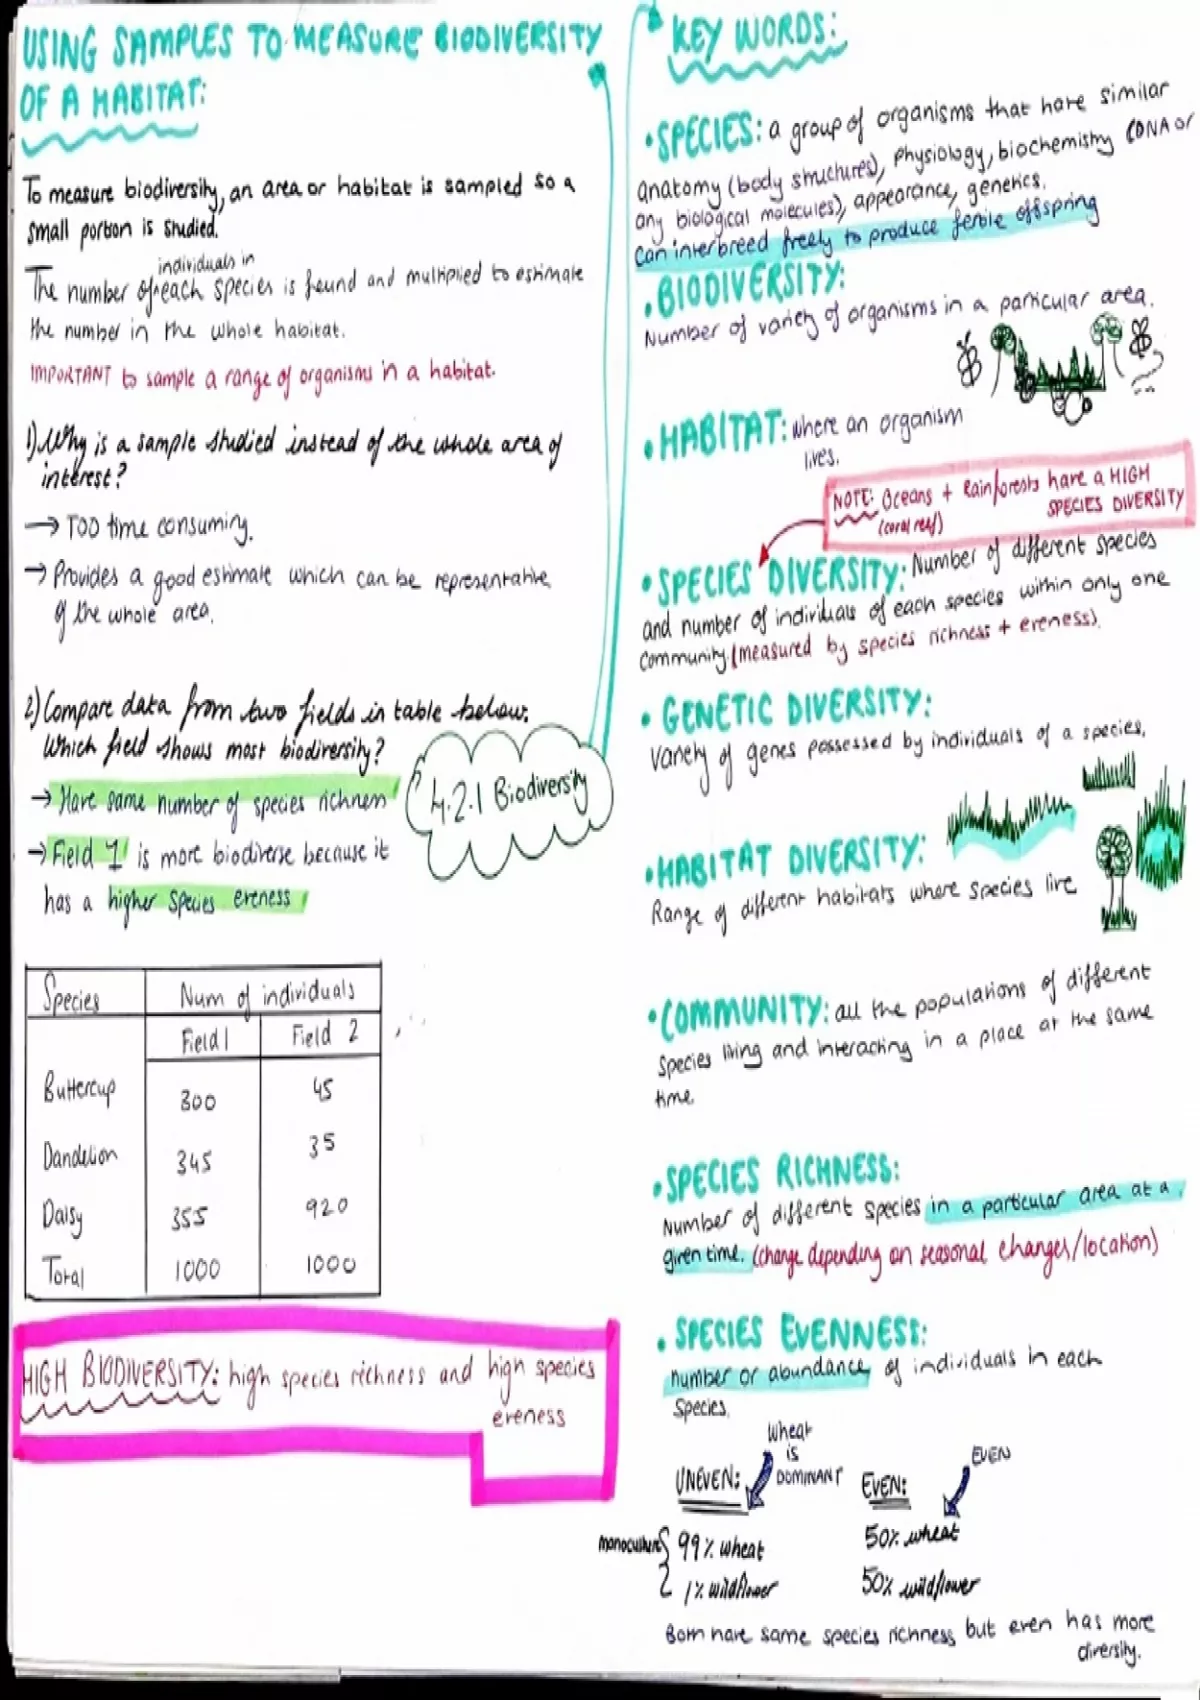 USING SAMPLES TO MEASURE BIODIVERSITY
OF A HABITAT:
To measure biodiversity, an area or habitat is sampled so a
small portion is studied.
individuals in
The number of each species is found and multiplied to estimate
the number in the whole habitat.
IMPORTANT to sample a range of organisms in a habitat.
1) Why is a sample studied instead of the whole area of
interest?
→ TOO time consuming.
→ Provides a good estimate which can be representative
of the whole area.
2) Compare data from two fields in table below.
Which field shows most biodiversity?
→ Have same number of species richness
→ Field 1 is more biodiverse because it
has a higher species eveness
4.2.1 Biodiversity
Species Num of individuals
Field 1 Field 2
Buttercup 300 45
Dandelion 345 35
Daisy 355 920
Total 1000 1000
HIGH BIODIVERSITY: high species richness and high species
eveness
KEY WORDS:
• SPECIES: a group of organisms that have similar
anatomy (body structures), physiology, biochemistry (DNA or
any biological molecules), appearance, genetics.
can interbreed freely to produce fertile offspring
• BIODIVERSITY:
Number of variety of organisms in a particular area.
• HABITAT: where an organism
lives.
NOTE: Oceans + Rainforests have a HIGH
(coral reef) SPECIES DIVERSITY
• SPECIES DIVERSITY: Number of different species
and number of individuals of each species within only one
community. (measured by species richness + eveness).
• GENETIC DIVERSITY:
Variety of genes possessed by individuals of a species.
• HABITAT DIVERSITY:
Range of different habitats where species live
• COMMUNITY: all the populations of different
species living and interacting in a place at the same
time.
• SPECIES RICHNESS:
Number of different species in a particular area at a
given time. (change depending on seasonal changes/location)
• SPECIES EVENNESS:
number or abundance of individuals in each
species.
wheat
is
DOMINANT
EVEN
UNEVEN: EVEN:
monoculture { 99% wheat 50% wheat
1% wildflower 50% wildflower
Both have same species richness but even has more
diversity.